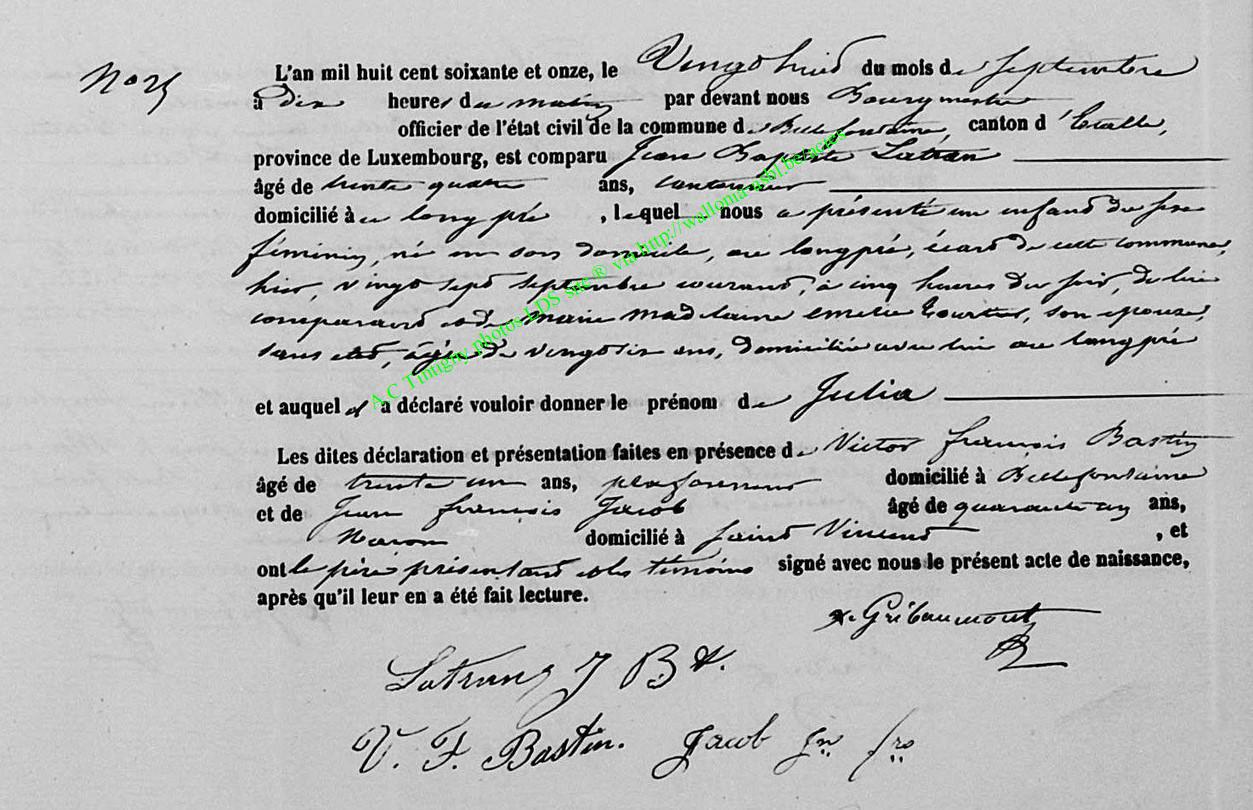 No 25
L'an mil huit cent soixante et onze, le Vingt huit du mois de septembre
à Dix heures du matin par devant nous Bourgmestre
officier de l'état civil de la commune de Bellefontaine, canton d'Etalle,
province de Luxembourg, est comparu Jean Baptiste Latran
âgé de trente quatre ans, cantonnier
domicilié à au longpré, lequel nous a présenté un enfant du sexe
féminin, né en son domicile, au longpré, écart de cette commune,
hier, vingt sept septembre courant, à cinq heures du soir, de lui
comparant et de marie madelaine emelie, son épouse,
sans état, agée de vingt six ans, domiciliée avec lui au longpré
et auquel il a déclaré vouloir donner le prénom de Julia
Les dites déclaration et présentation faites en présence de Victor françois Bastin
âgé de trente un ans, plafonneur domicilié à Bellefontaine
et de Jean françois Jacob âgé de quarante ans,
Maçon domicilié à saint Vincent, et
ont le père présentant et les témoins signé avec nous le présent acte de naissance,
après qu'il leur en a été fait lecture.
Gribaumont
Latran J Bt.
V. F. Bastin. Jacob Jn frs
A.C Tintigny photos LDS site® via http://wallonia-asbl.be/actes